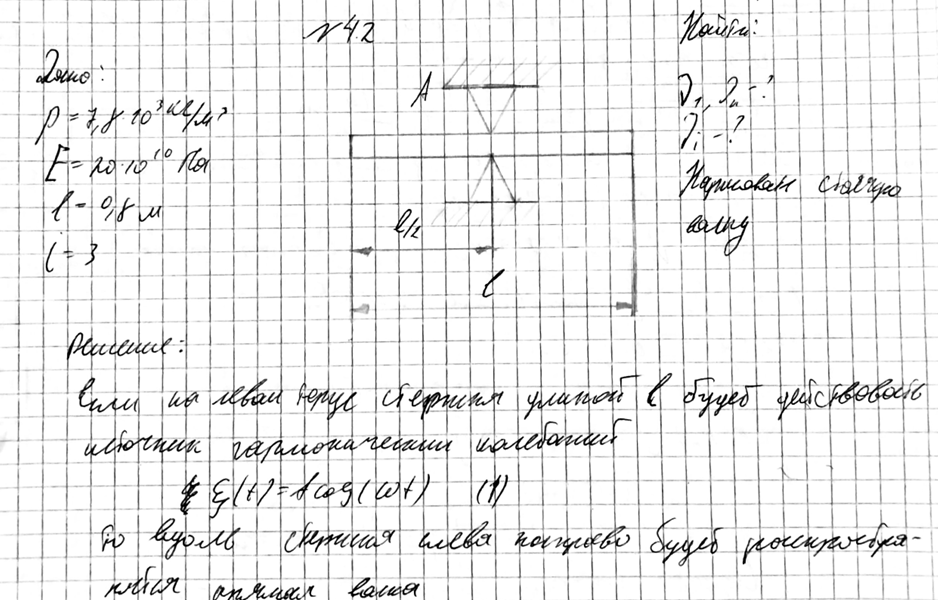 № 4.2
Дано:
ρ = 7,8·10³ кг/м³
E = 20·10¹⁰ Па
l = 0,8 м
i = 3
A
l/2
l
Найти:
ν₁, νₙ - ?
νᵢ - ?
Нарисовать стоячую
волну
Решение:
Если на левый торце стержня длиной l будет действовать
источник гармонических колебаний
ξ(t) = A cos(ωt) (1)
то вдоль стержня слева направо будет распростра-
няться прямая волна